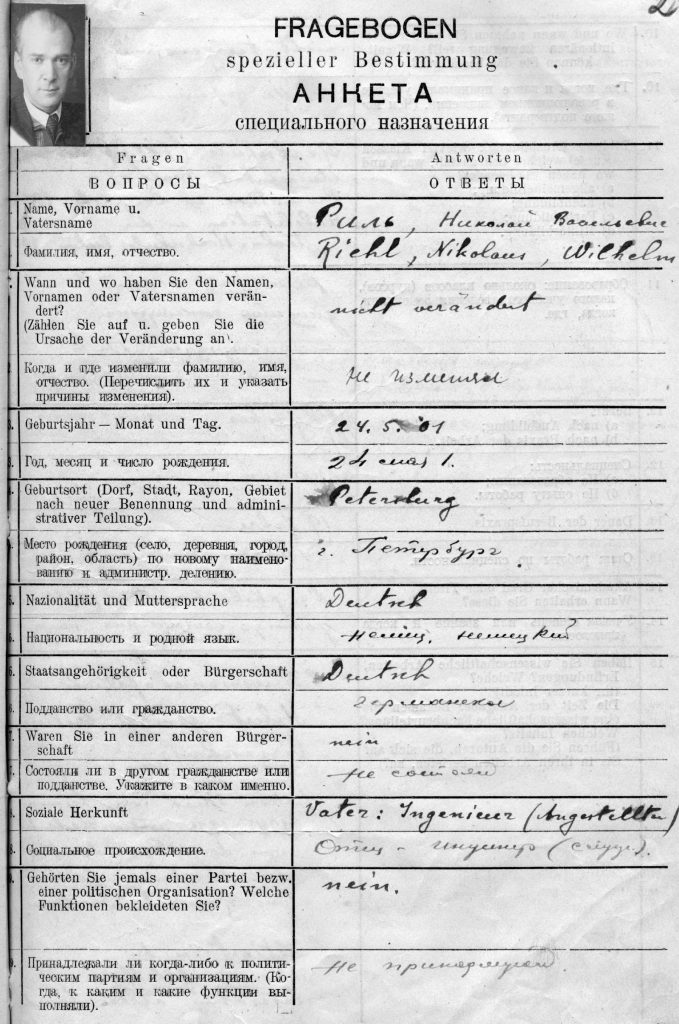 FRAGEBOGEN
spezieller Bestimmung
АНКЕТА
специального назначения
Fragen
ВОПРОСЫ
Antworten
ОТВЕТЫ
Name, Vorname u.
Vatersname
Риль, Николай Васильевич
Фамилия, имя, отчество.
Riehl, Nikolaus, Wilhelm
Wann und wo haben Sie den Namen,
Vornamen oder Vatersnamen verän-
dert?
(Zählen Sie auf u. geben Sie die
Ursache der Veränderung an).
nicht verändert
Когда и где изменили фамилию, имя,
отчество. (Перечислить их и указать
причины изменения).
не изменял
Geburtsjahr — Monat und Tag.
24. 5. 01
Год, месяц и число рождения.
24 мая 1.
Geburtsort (Dorf, Stadt, Rayon, Gebiet
nach neuer Benennung und admini-
strativer Teilung).
Petersburg
Место рождения (село, деревня, город,
район, область) по новому наимено-
ванию и администр. делению.
г. Петербург
5. Nazionalität und Muttersprache
Deutsch
Национальность и родной язык.
немец, немецкий
Staatsangehörigkeit oder Bürgerschaft
Deutsch
Подданство или гражданство.
германское
7. Waren Sie in einer anderen Bürger-
schaft
nein
Состояли ли в другом гражданстве или
подданстве. Укажите в каком именно.
не состоял
Soziale Herkunft
Vater: Ingenieur (Angestellter)
Социальное происхождение.
Отец - инженер
Gehörten Sie jemals einer Partei bezw.
einer politischen Organisation? Welche
Funktionen bekleideten Sie?
nein.
Принадлежали ли когда-либо к полити-
ческим партиям и организациям. (Ко-
гда, к каким и какие функции вы-
полняли).
не принадлежал